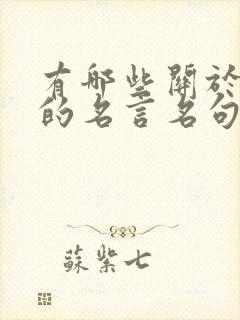 有哪些關於
的名言名句
蘇紫七